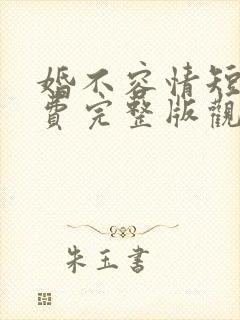 婚不容情短
費完整版觀
朱玉書